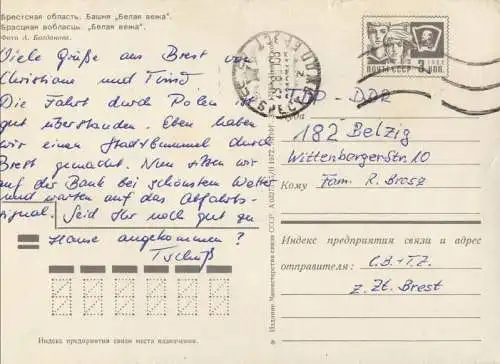 Брестская область. Башня „Белая вежа".
Брэсцкая вобласць. „Белая вежа".
Фото А. Богданова.
Viele Grüße aus Brest von
Christiane und
Die Fahrt durch Polen ist
gut überstanden. Eben haben
wir einen Stadtbummel durch
Brest gemacht. Nun sitzen wir
auf der Bank bei schönstem Wetter
und warten auf das Abfahrts-
signal. Seid Ihr noch gut zu
Hause angekommen?
Tschüß
Индекс предприятия связи места назначения.
Издание Министерства связи СССР.
ПОЧТА СССР
3 КОП.
DDR
Куда
182 Belzig
Wittenbergerstr. 10
Кому Fam. R. Brosz
Индекс предприятия связи и адрес
отправителя: C.B.+T.Z.
z. Zt. Brest